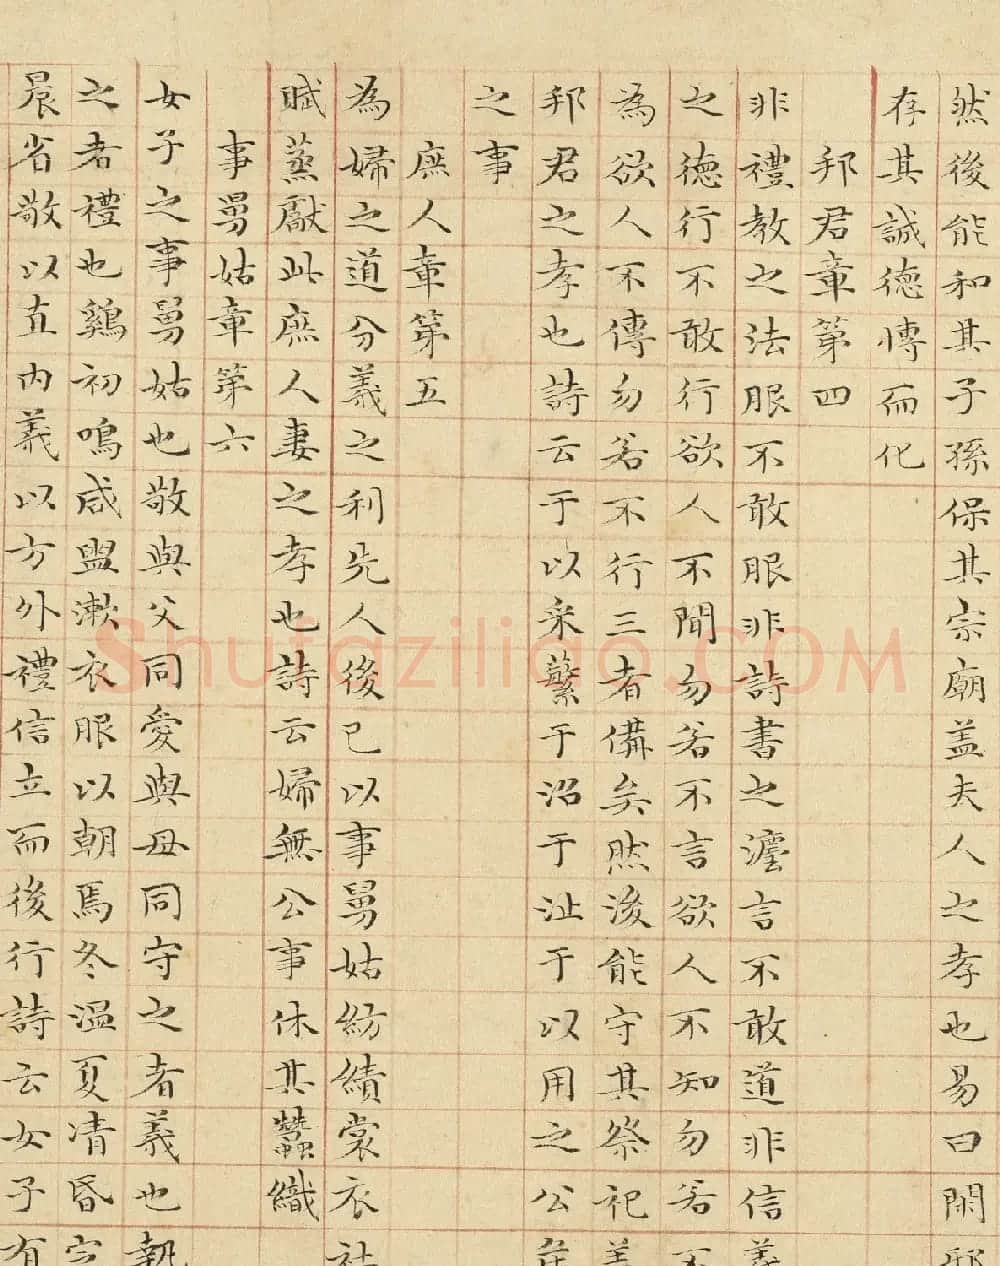 然後能和其子孫保其宗廟盖夫人之孝也易曰閑邪
存其誠德愽而化
邦君章第四
非禮教之法服不敢服非詩書之灋言不敢道非信義
之德行不敢行欲人不聞勿若不言欲人不知勿若不
為欲人不傳勿若不行三者備矣然後能守其祭祀盖
邦君之孝也詩云于以采蘩于沼于沚于以用之公
之事
庶人章第五
為婦之道分義之利先人後己以事舅姑紡績裳衣社
賦蒸獻此庶人妻之孝也詩云婦無公事休其蠶織
事舅姑章第六
女子之事舅姑也敬與父同愛與母同守之者義也執
之者禮也鷄初鳴咸盥漱衣服以朝焉冬溫夏凊昏定
晨省敬以直內義以方外禮信立而後行詩云女子有
Shufaziliao.COM